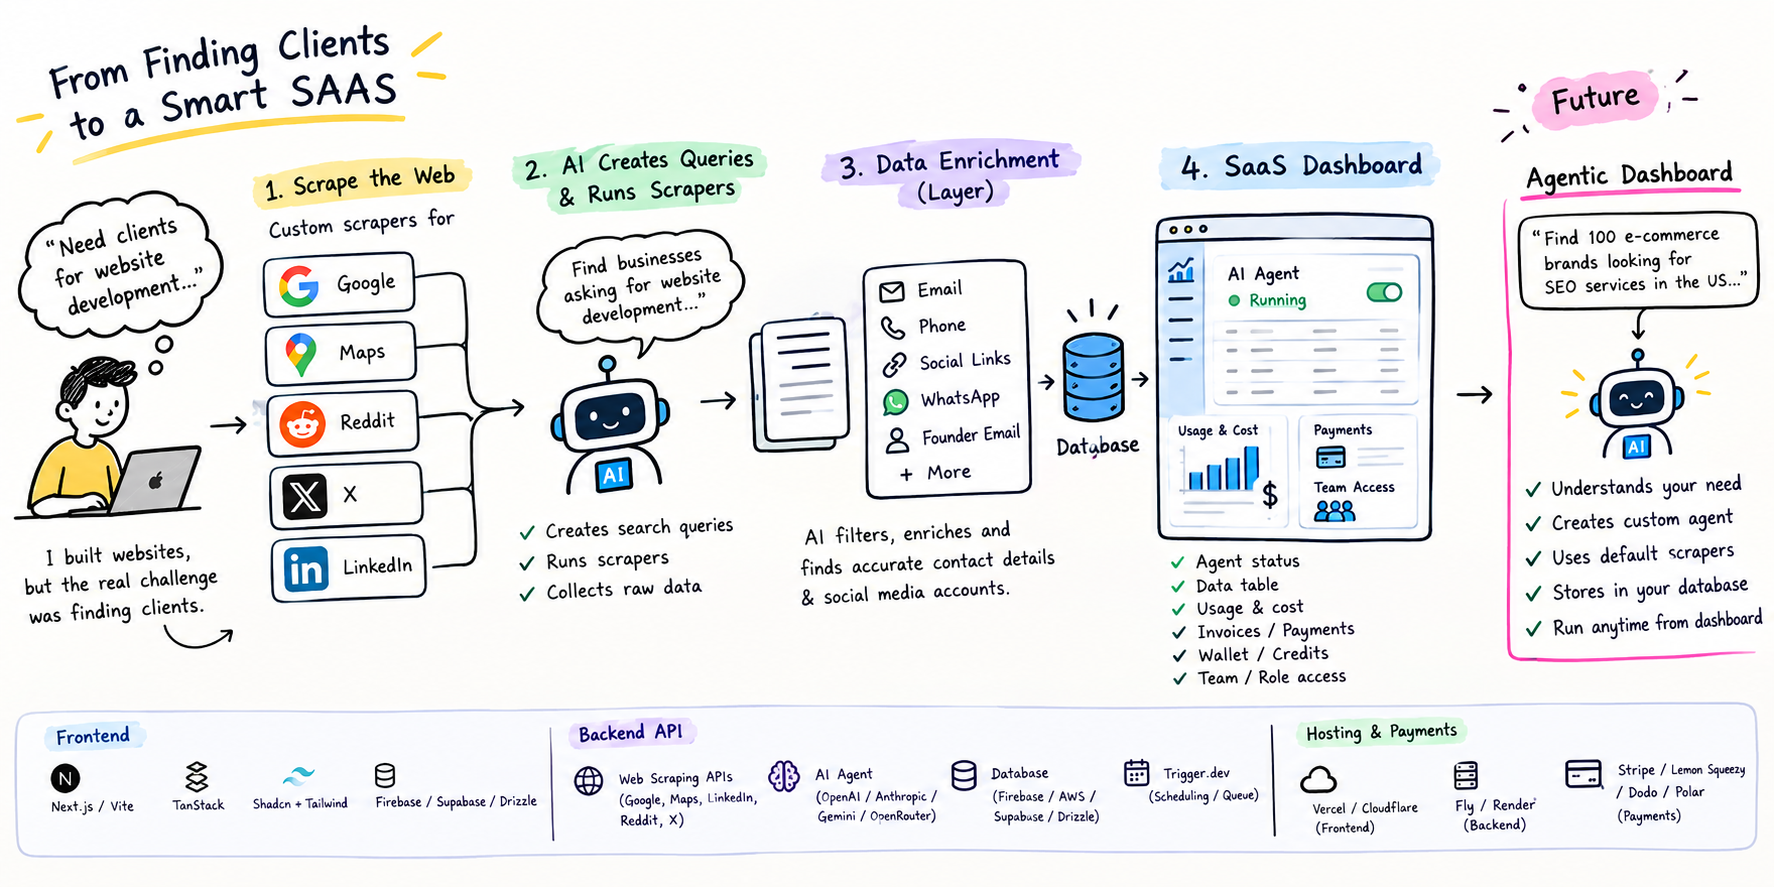 From Finding Clients
to a Smart SAAS
"Need clients
for website
development..."
I built websites,
but the real challenge
was finding clients.
1. Scrape the Web
Custom scrapers for
Google
Maps
Reddit
X
LinkedIn
2. AI Creates Queries
& Runs Scrapers
Find businesses
asking for website
development..."
AI
✓ Creates search queries
✓ Runs scrapers
✓ Collects raw data
3. Data Enrichment
(Layer)
Email
Phone
Social Links
WhatsApp
Founder Email
+ More
AI filters, enriches and
finds accurate contact details
& social media accounts.
Database
4. SaaS Dashboard
AI Agent
Running
Usage & Cost
$
Payments
Team Access
✓ Agent status
✓ Data table
✓ Usage & cost
✓ Invoices / Payments
✓ Wallet / Credits
✓ Team / Role access
Future
Agentic Dashboard
"Find 100 e-commerce
brands looking for
SEO services in the US..."
AI
✓ Understands your need
✓ Creates custom agent
✓ Uses default scrapers
✓ Stores in your database
✓ Run anytime from dashboard
Frontend
N
Next.js / Vite
TanStack
Shadcn + Tailwind
Firebase / Supabase / Drizzle
Backend API
Web Scraping APIs
(Google, Maps, LinkedIn,
Reddit, X)
AI Agent
(OpenAI / Anthropic /
Gemini / OpenRouter)
Database
(Firebase / AWS /
Supabase / Drizzle)
Trigger.dev
(Scheduling / Queue)
Hosting & Payments
Vercel / Cloudflare
(Frontend)
Fly / Render
(Backend)
Stripe / Lemon Squeezy
/ Dodo / Polar
(Payments)